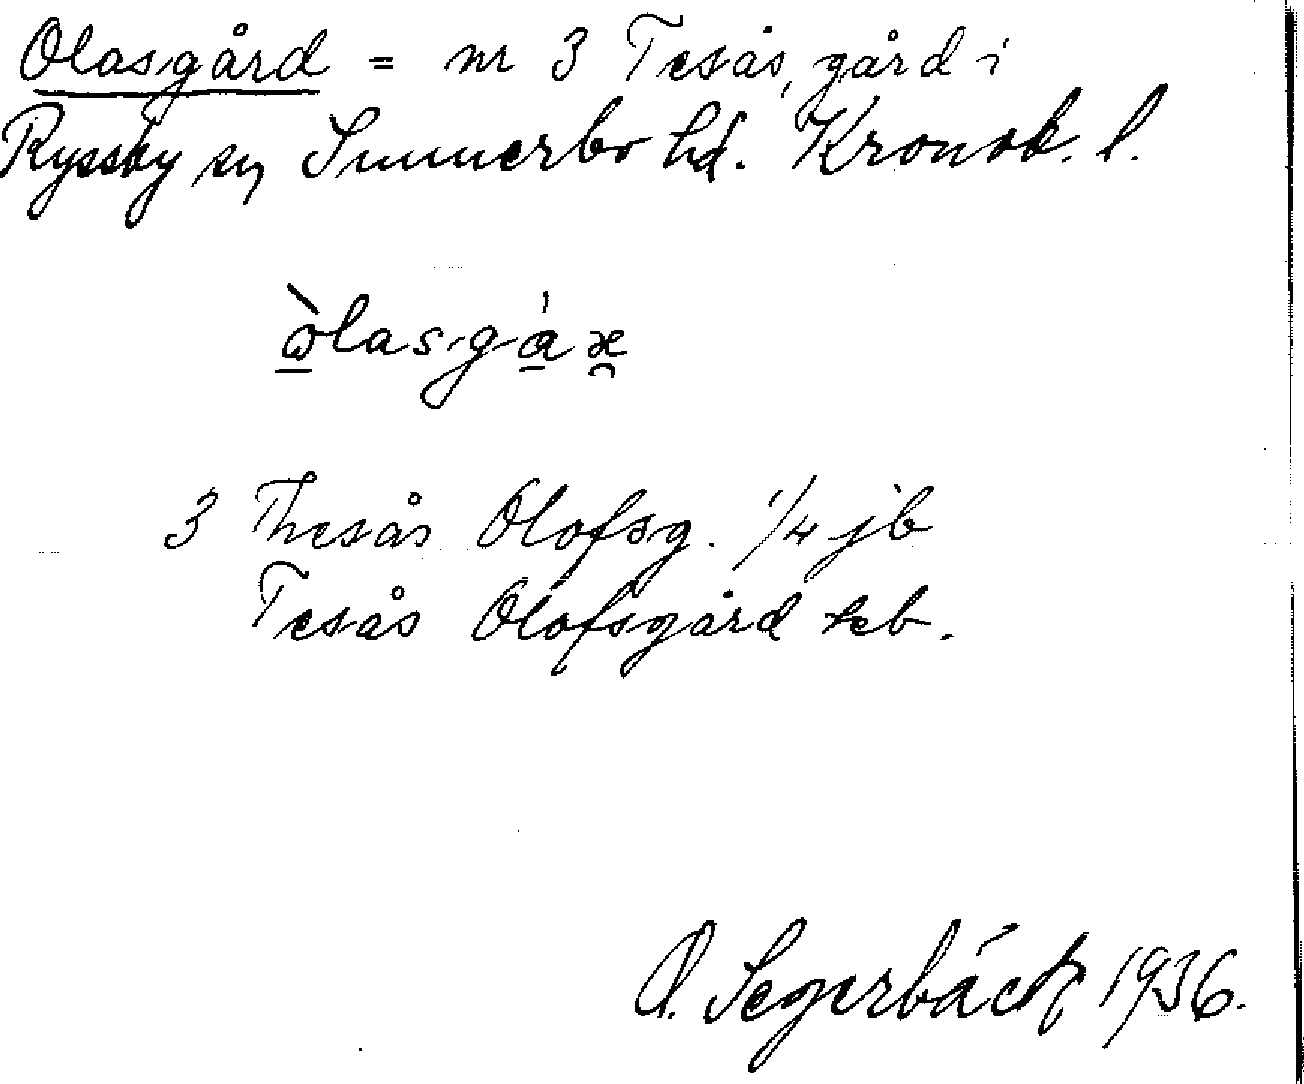 Olasgård = nr 3 Tesås, gård i
Ryssby sn Sunnerbo hd. Kronob. l.
3 Thesås Olofsg. 1/4 jb
Tesås Olofsgård
B. Segerbäck 1936.